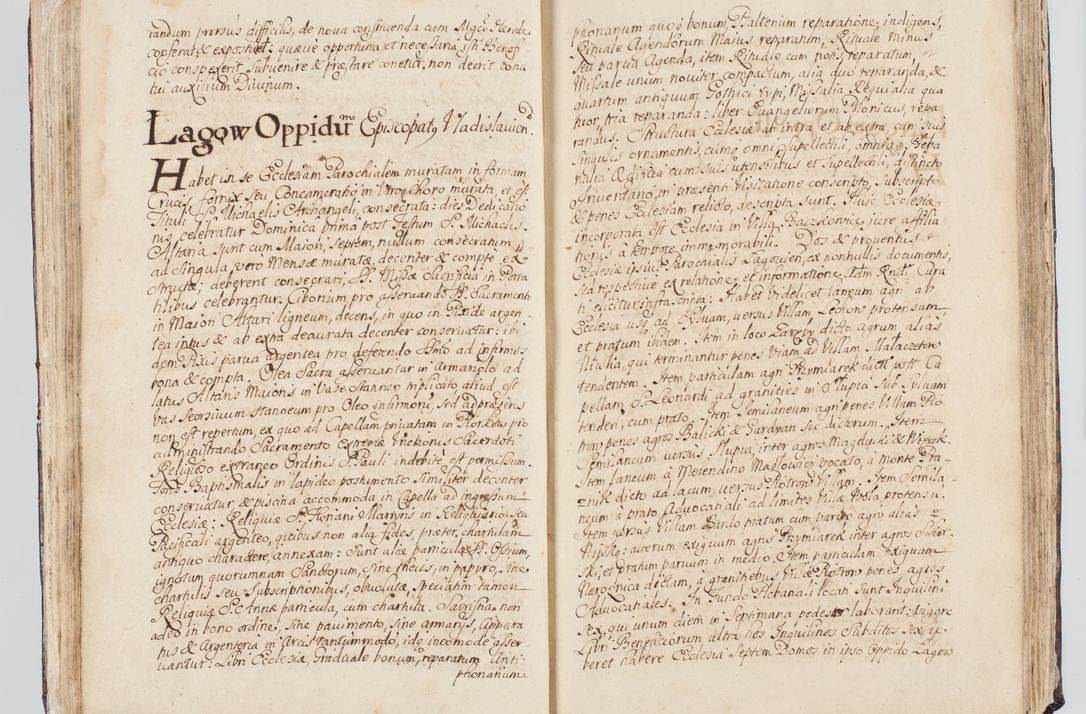 randum prorsus difficilis, de nova construenda cum Mgco Herede
conferat & expostulet: quævis opportuna et necessaria isti Benefi-
cio conspexerit, subvenire & præstare conetur, non deerit cona-
tui auxilium Divinum.
Lagow Oppidum Episcopatus Wladislavien.
Habet in se Ecclesiam Parochialem muratam in formam
Crucis, fornix seu Concameratio in utroq Choro murata, et est
Tituli S. Michaelis Archangeli, consecrata: dies Dedicatio
nis celebratur Dominica prima post Festum S. Michaelis.
Altaria sunt cum Maiori septem, nullum consecratum
ad singula vero Mensæ muratæ, decenter & compte ex
structæ; deberent consecrari, SS. Missæ Sacrificia in Porta
tilibus celebrantur. Ciborium pro asservando SS. Sacramento
in Maiori Altari ligneum, decens, in quo in Pixide argen
tea intus & ab extra deaurata decenter conservatur: ibi
dem Pixis parva argentea pro deferendo SSmo ad infirmos
bona & compta. Olea Sacra asservantur in armariolo ad
latus Altaris Maioris in Vase stanneo triplicato, aliud est
vas seorsivum stanneum pro Oleo infirmorum, sed ad præsens
non est repertum, ex quo ad Capellam privatam in Piorkow pro
administrando Sacramento Extremæ Unctionis Sacerdoti
Religioso extraneo Ordinis S. Pauli indebite est permissum.
Fons Baptismalis in lapideo postumento similiter decenter
conservatur, & piscina accommoda in Capella ad ingressum
Ecclesiæ: Reliquiæ S. Floriani Martyris in Religiario seu
Pacificali argenteo, quibus non alia fides, præter chartulam
antiquo charactere, annexam: Sunt aliæ particulæ SS. Ossium,
ignotum quorumnam Sanctorum, sine thecis, in papyro, sine
chartulis seu subscriptionibus, obvolutæ, speciatim tamen
Reliquiæ S. Annæ particula, cum chartula. Sacristia non
adeo in bono ordine, sine pavimento, sine armarijs, appara
tus & Argenteria in arcis tantummodo, ideo incomode asser-
vantur: Libri Ecclesiæ, Graduale bonum, reparatum Anti-
phonarium
phonarium quoq bonum, Psalterium reparatione indigens,
Rituale Agendorum Maius reparatum, Rituale minus
seu parva Agenda, item Rituale cum notis reparatum,
Missale unum noviter compactum, alia duo reparanda, &
quartum antiquum Gothici typi, Missalia Requialia qua
tuor, tria reparanda: liber Evangeliorum Polonicus, repa
randus. Structura Ecclesiæ ab intra et ab extra, cum suis
singulis ornamentis, cumq omni supellectili,
nalia & cum suis utensilibus et supellectili, distincto
Inventario, in præsenti Visitatione conscripto, subscripto
& penes Ecclesiam relicto, descripta sunt. Huic Ecclesiæ
incorporata est Ecclesia in Villa Baczkowice, iure affilia
tionis, à tempore immemorabili. Dos & proventus
Ecclesiæ ipsius Parochialis Lagovien, ex nonnullis documentis,
sed respective ex relatione et informatione, Rndi Cura
ti elicitur infrascripta: Habet videlicet laneum agri ab
Ecclesia usq ad Sylvam, versus Villam Lechow protensum
et pratum ibidem. Item in loco dicto agrum, alias
qui terminantur penes viam ad Villam
tendentem. Item particulam agri Przymiarek dicti post Ca
pellam S. Leonardi ad granities in Slupia sub Sylvam
tenden, cum prato. Item semilaneum agri penes Villam Pio
trow penes agros Balicki & sic dictorum. Item
semilaneum versus Slupia, inter agros &
Item laneum à Molendino Maslowiec vocato, à monte
dicto ad lacum, versus Piotrow Villam. Item semila-
neum à prato Advocatiali ad limites Villæ Wola protensum.
Item versus Villam pratum cum parvo agro alias
alterum exiguum agri Przymiarek inter agros
et pratum parvum in medio. Item particulam exiguam
dictum, à granitiebus Villæ Piotrow penes agros
Advocatiales. In Fundo Plebanali locati sunt Inquilini
sex, qui unum diem in septimana pedester laborant: vigore
Libri Beneficiorum ultra hos Inquilinos Subditos sex, de
beret habere Ecclesia septem Domos in ipso Oppido Lagow